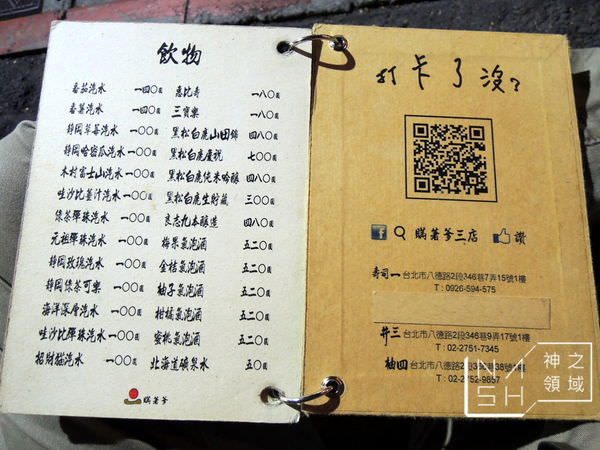 飲物
番茄汽水 一四〇元 惠比壽 一八〇元
番薯汽水 一四〇元 三寶樂 一八〇元
靜岡草莓汽水 一〇〇元 黑松白鹿山田錦 四八〇元
靜岡哈密瓜汽水 一〇〇元 黑松白鹿慶祝 七〇〇元
木村富士山汽水 一〇〇元 黑松白鹿純米吟釀 四八〇元
哇沙比薑汁汽水 一〇〇元 黑松白鹿生貯藏 三〇〇元
綠茶彈珠汽水 一〇〇元 良志久本釀造 四八〇元
元祖彈珠汽水 一〇〇元 梅果氣泡酒 五二〇元
靜岡玫瑰汽水 一〇〇元 金桔氣泡酒 五二〇元
靜岡綠茶可樂 一〇〇元 柚子氣泡酒 五二〇元
海洋深層汽水 一〇〇元 柑橘氣泡酒 五二〇元
哇沙比彈珠汽水 一〇〇元 蜜桃氣泡酒 五二〇元
招財貓汽水 一〇〇元 北海道礦泉水 五〇元
瞞著爹
打卡了沒?
f 瞞著爹三店 讚
壽司一 台北市八德路2段346巷7弄15號1樓
T : 0926-594-575
丼三 台北市八德路2段346巷9弄17號1樓
T : 02-2751-7345
柚四 台北市八德路2段366巷38號1樓
T : 02-2752-9857
NASH 神之領域